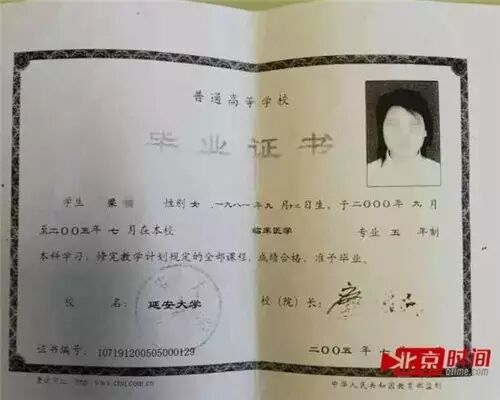 普通高等学校
毕业证书
学生 梁 性别 女 ,一九八一年九月十二日生、于二000年 九月
至二00五年 七月在本校 临床医学 专业 五 年制
本科学习,修完教学计划规定的全部课程,成绩合格、准予毕业。
校 名: 延安大学 校(院)长: 廖
证书编号: 107191200505000129 二00五年 七
查询网址: http://www.chsi.com.cn 中华人民共和国教育部监制
北京时间
btime.com